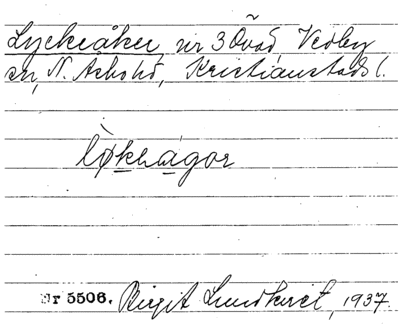 Lyckeåker, nr 3 Övad Vedby
sn, N. Åsbo hd, Kristianstads l.
Nr 5506. Birgit Lundkvist, 1937